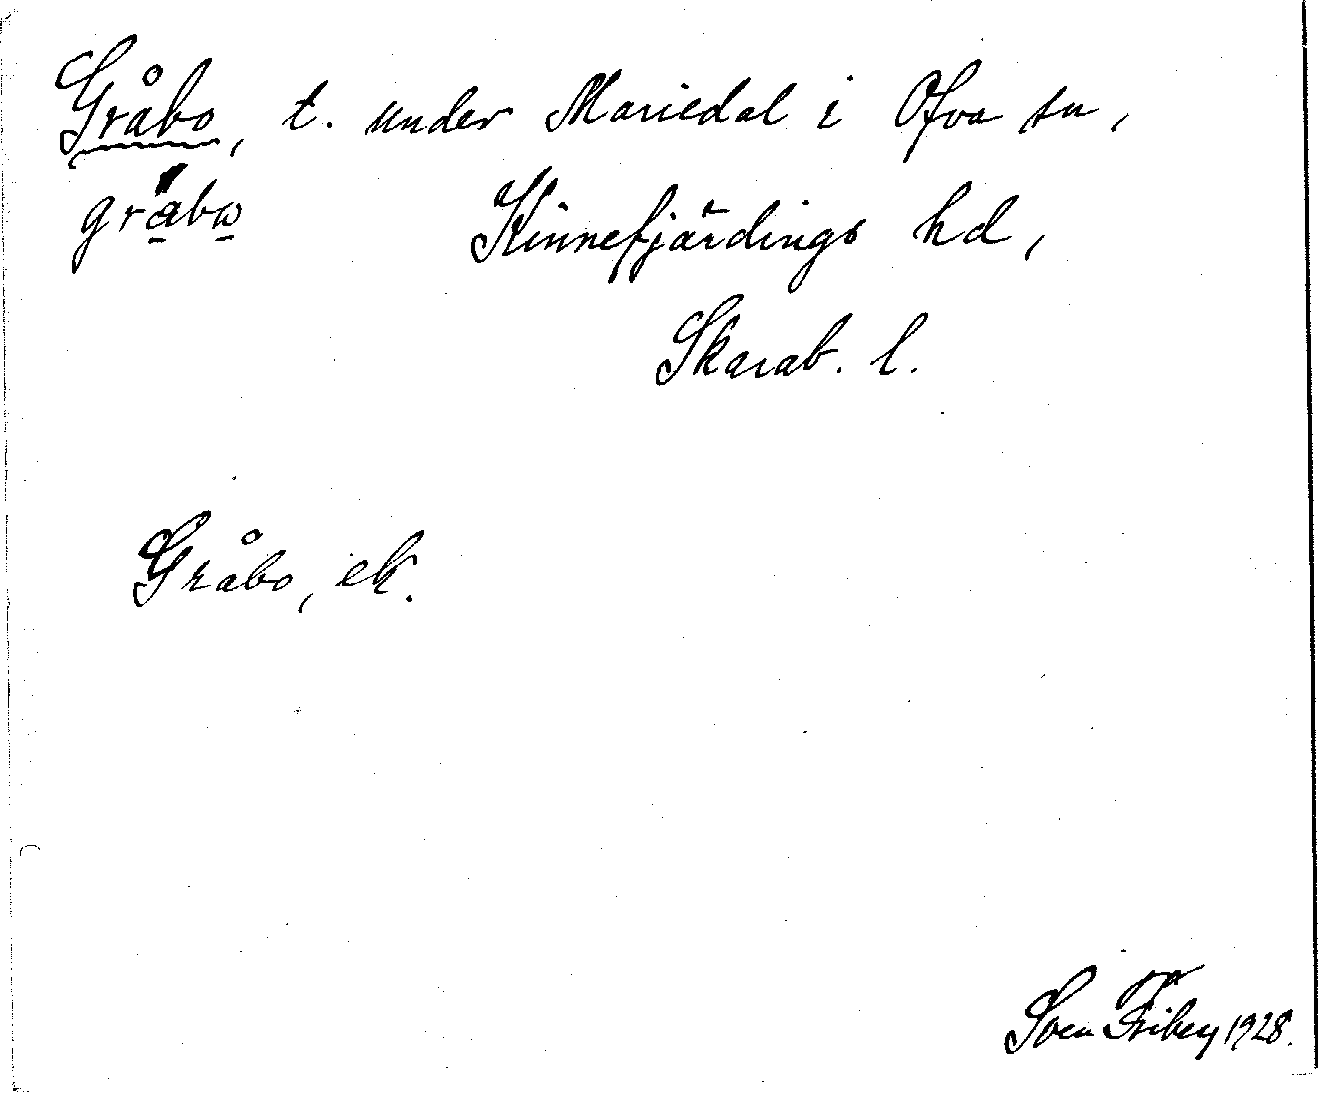 Gråbo, t. under Mariedal i Ofva sn,
gråbω Kinnefjärdings hd,
Skarab. l.
Gråbo, ek.
Sven Friberg 1928.